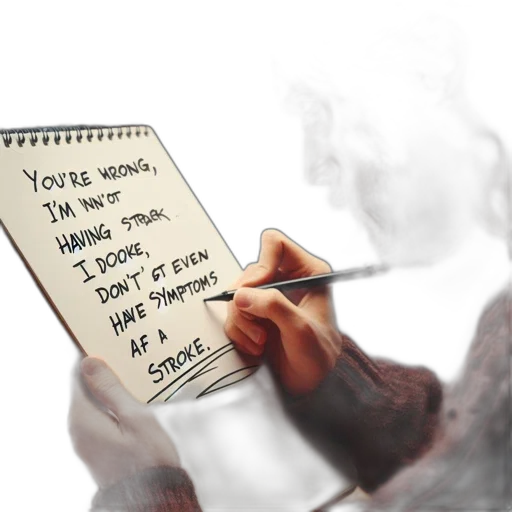 YOU'RE WRONG,
I'M 'N'N'OT
HAVING STRDEK
I DOOKE,
DON'T' GT EVEN
HAVE SYMPTOMS
AF A
STROKE.